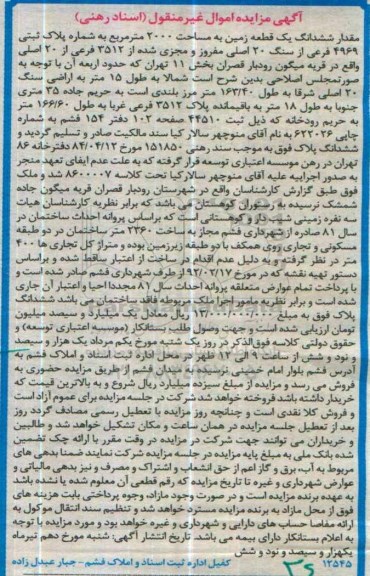 آگهی مزایده اموال غیر منقول (اسناد رهنی)
مقدار ششدانگ یک قطعه زمین به مساحت ۲۰۰۰ مترمربع به شماره پلاک ثبتی
۴۹۶۹ فرعی از سنگ ۲۰ اصلی مفروز و مجزی شده از ۳۵۱۲ فرعی از ۲۰ اصلی
واقع در قریه میگون رودبار قصران بخش ۱۱ تهران که حدود اربعه آن با توجه به
صورتمجلس اصلاحی بدین شرح است شمالا به طول ۱۵ متر به اراضی سنگ
۲۰ اصلی شرقا به طول ۱۶۳/۴۰ متر مرز بلندی است به حریم جاده ۳۵ متری
جنوبا به طول ۱۸ متر به باقیمانده پلاک ۳۵۱۲ فرعی غربا به طول ۱۶۶/۶۰ متر
به حریم رودخانه که ذیل ثبت ۴۴۵۱۰ صفحه ۱۰۲ دفتر ۱۵۴ فشم به شماره
چاپی ۶۲۲۰۲۶ به نام آقای منوچهر سالارکیا سند مالکیت صادر و تسلیم گردید و
ششدانگ پلاک فوق به موجب سند رهنی ۱۵۱۸۵۰ مورخ ۸۴/۰۴/۱۲ دفترخانه ۸۶
تهران در رهن موسسه اعتباری توسعه قرار گرفته که به علت عدم ایفای تعهد منجر
به صدور اجراییه علیه آقای منوچهر سالارکیا تحت کلاسه ۸۶۰۰۰۰۷ شد و ملک
فوق طبق گزارش کارشناسان واقع در شهرستان رودبار قصران قریه میگون جاده
شمشک نرسیده به رستوران کوهستان می باشد که برابر نظریه کارشناسان هیات
سه نفره زمینی شیب دار و کوهستانی است که براساس پروانه احداث ساختمان در
سال ۸۱ صادره از شهرداری فشم مجاز به ساخت ۲۳۶۰ متر ساختمان در دو طبقه
مسکونی و تجاری روی همکف با دو طبقه زیرزمین بوده و متراژ کل تجاری ها ۴۰۰
متر در نظر گرفته و به دلیل عدم اقدام در ساخت از اعتبار ساقط شده و براساس
دستور تهیه نقشه که در مورخ ۹۲/۰۲/۱۷ از طرف شهرداری فشم صادر شده است و
با پرداخت تمام عوارض متعلقه پروانه احداث سال ۸۱ مجددا احیا و اعتبار آن جاری
شده است و برابر نظریه مامور اجرا ملک مربوطه فاقد ساختمان می باشد ششدانگ
پلاک فوق به مبلغ ۱۳/۰۰۰/۰۰۰/۰۰۰ ریال معادل یک میلیارد و سیصد میلیون
تومان ارزیابی شده است و جهت وصول طلب بستانکار (موسسه اعتباری توسعه) و
حقوق دولتی کلاسه فوق الذکر در روز یک شنبه مورخ یکم مرداد یک هزار و سیصد
و نود و شش از ساعت ۹ الی ۱۲ ظهر در محل اداره ثبت اسناد و املاک فشم به
آدرس فشم بلوار امام خمینی نرسیده به میدان فشم از طریق مزایده حضوری به
فروش می رسد و مزایده از مبلغ سیزده میلیارد ریال شروع و به بالاترین قیمت که
خریدار داشته باشد فروخته خواهد شد شرکت در جلسه مزایده برای عموم آزاد است
و فروش کلا نقدی است و چنانچه روز مزایده با تعطیل رسمی مصادف گردد روز
بعد از تعطیل جلسه مزایده در همان ساعت و مکان تشکیل خواهد شد و طالبین
و خریداران می توانند جهت شرکت در مزایده در وقت مقرر با ارائه چک تضمین
شده بانک ملی به مبلغ پایه مزایده در جلسه مزایده شرکت نمایند ضمنا بدهی های
مربوط به آب، برق و گاز اعم از حق انشعاب و اشتراک و مصرف و نیز بدهی مالیاتی و
عوارض شهرداری و غیره تا تاریخ مزایده که رقم قطعی آن معلوم شده یا نشده باشد
به عهده برنده مزایده است و در صورت وجود مازاد، وجوه پرداختی بابت هزینه های
فوق از محل مازاد به برنده مزایده مسترد خواهد شد و تنظیم سند انتقال موکول به
ارائه مفاصا حساب های دارایی و شهرداری و غیره خواهد بود و مورد مزایده با توجه
به اعلام بستانکار دارای بیمه می باشد. تاریخ انتشار آگهی: شنبه مورخ دهم تیرماه
یکهزار و سیصد و نود و شش
۱۲۵۴۵ کفیل اداره ثبت اسناد و املاک فشم - جبار عبدل زاده